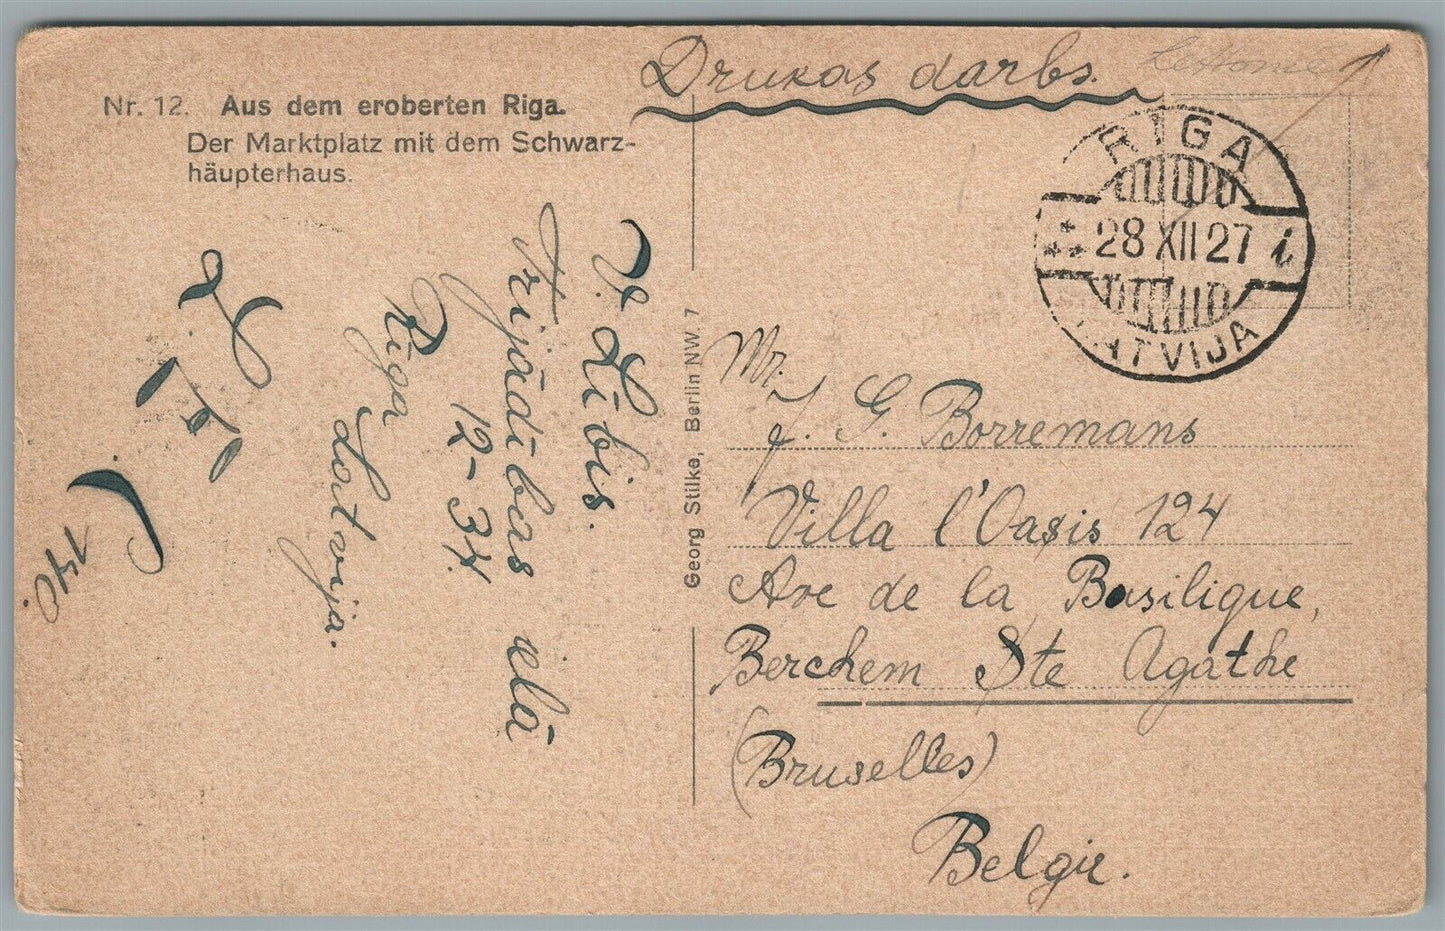 Nr. 12. Aus dem eroberten Riga.
Der Marktplatz mit dem Schwarz-
häupterhaus.
Drukas darbs.
Lettonie
RIGA
28 XII 27
LATVIJA
Mr.
J. G. Borremans
Villa l'Oasis 124
Ave de la Basilique,
Berchem Ste Agathe
(Bruselles)
Belgie.
Georg Stilke, Berlin NW. 7
Lubis.
12-34.
Riga
Latvija.
140